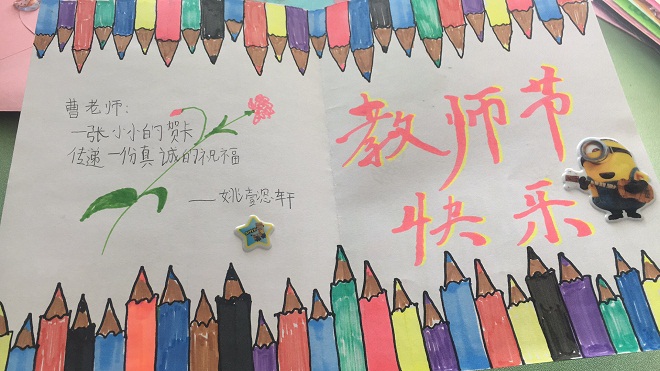 曹老师：
一张小小的贺卡
传递一份真诚的祝福
教师节
快乐